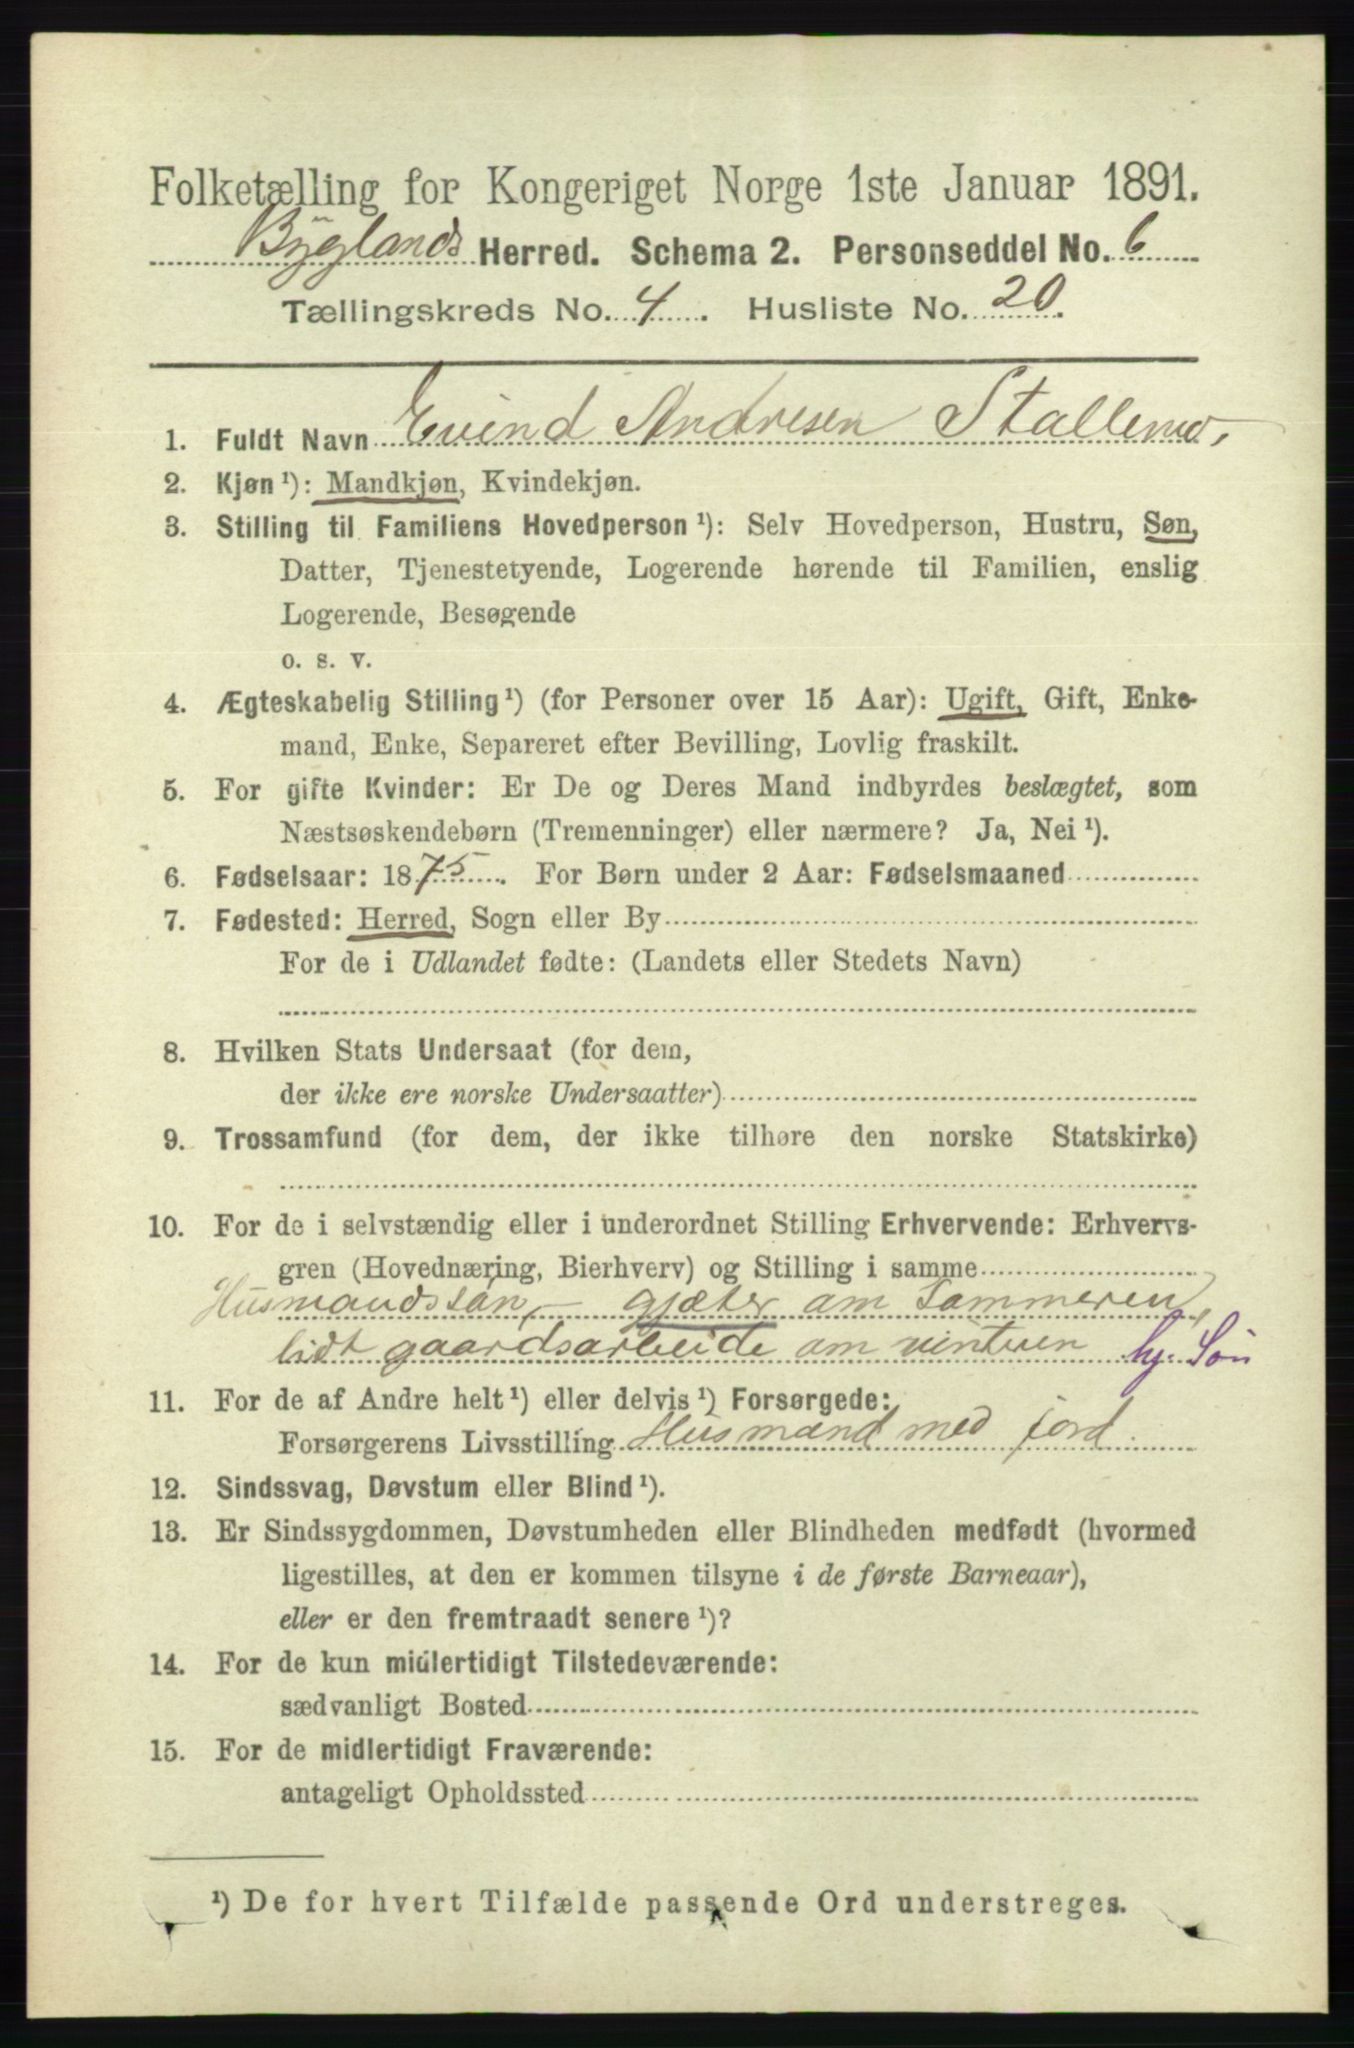 Folketælling for Kongeriget Norge 1ste Januar 1891.
Byglands Herred. Schema 2. Personseddel No. 6
Tællingskreds No. 4. Husliste No. 20.
1. Fuldt Navn Eivind Andresen Stallemo,
2. Kjøn ¹): Mandkjøn, Kvindekjøn.
3. Stilling til Familiens Hovedperson ¹): Selv Hovedperson, Hustru, Søn,
Datter, Tjenestetyende, Logerende hørende til Familien, enslig
Logerende, Besøgende
o. s. v.
4. Ægteskabelig Stilling ¹) (for Personer over 15 Aar): Ugift, Gift, Enke-
mand, Enke, Separeret efter Bevilling, Lovlig fraskilt.
5. For gifte Kvinder: Er De og Deres Mand indbyrdes beslægtet, som
Næstsøskendebørn (Tremenninger) eller nærmere? Ja, Nei ¹).
6. Fødselsaar: 1875. For Børn under 2 Aar: Fødselsmaaned
7. Fødested: Herred, Sogn eller By
For de i Udlandet fødte: (Landets eller Stedets Navn)
8. Hvilken Stats Undersaat (for dem,
der ikke ere norske Undersaatter)
9. Trossamfund (for dem, der ikke tilhøre den norske Statskirke)
10. For de i selvstændig eller i underordnet Stilling Erhvervende: Erhvervs-
gren (Hovednæring, Bierhverv) og Stilling i samme
Husmandssøn, - gjæter om Sommeren,
lidt gaardsarbeide om vinteren hj. Søn
11. For de af Andre helt ¹) eller delvis ¹) Forsørgede:
Forsørgerens Livsstilling Husmand med jord.
12. Sindssvag, Døvstum eller Blind ¹).
13. Er Sindssygdommen, Døvstumheden eller Blindheden medfødt (hvormed
ligestilles, at den er kommen tilsyne i de første Barneaar),
eller er den fremtraadt senere ¹)?
14. For de kun midlertidigt Tilstedeværende:
sædvanligt Bosted
15. For de midlertidigt Fraværende:
antageligt Opholdssted
¹) De for hvert Tilfælde passende Ord understreges.